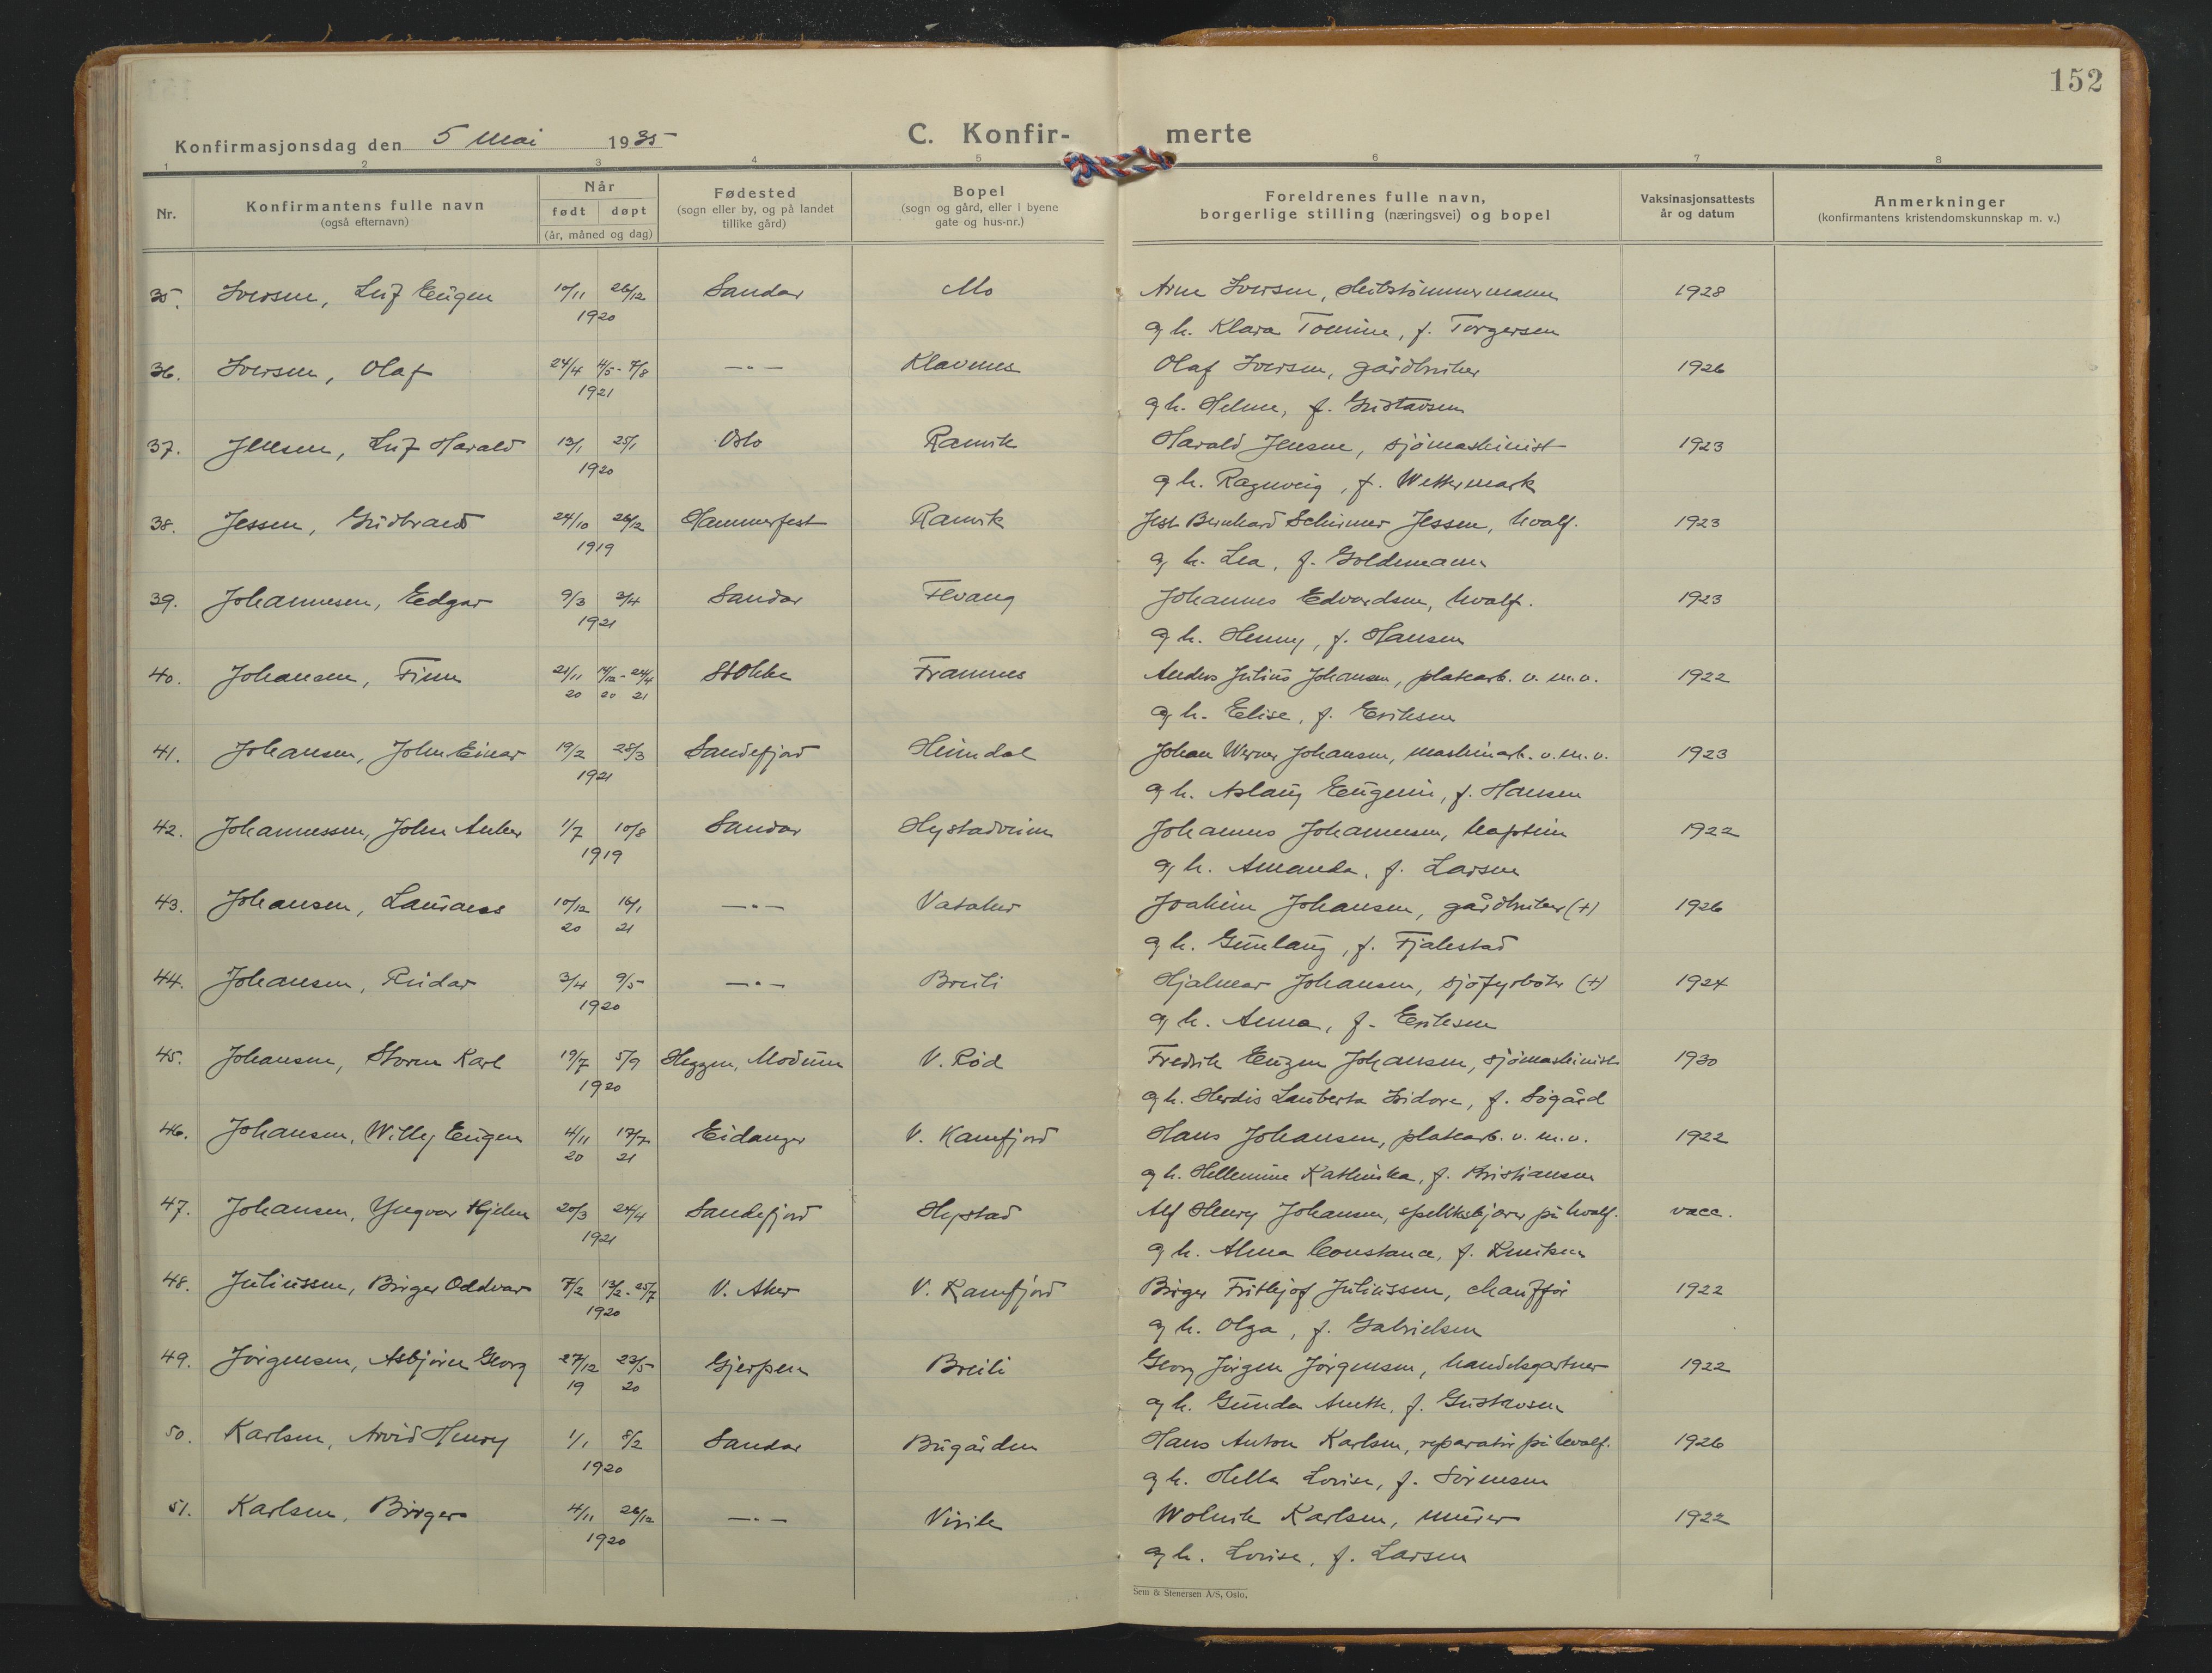 152
Konfirmasjonsdag den 5 Mai 1935
C. Konfir- merte
1 2 3 4 5 6 7 8
Nr.
Konfirmantens fulle navn
(også efternavn)
Når
født døpt
(år, måned og dag)
Fødested
(sogn eller by, og på landet
tillike gård)
Bopel
(sogn og gård, eller i byene
gate og hus-nr.)
Foreldrenes fulle navn,
borgerlige stilling (næringsvei) og bopel
Vaksinasjonsattests
år og datum
Anmerkninger
(konfirmantens kristendomskunnskap m. v.)
35. Iversen, Leif Eugen 10/11 26/12 Sandar Mo Arne Iversen, skibstømmermann 1928
1920 og h. Klara Tomine, f. Torgersen
36. Iversen, Olaf 24/4 4/5 - 7/8 —„— Klavenes Olaf Iversen, gårdbruker 1926
1921 og h. Helene, f. Gustavsen
37. Jensen, Leif Harald 13/1 25/1 Oslo Ranvik Harald Jensen, sjømaskinist 1923
1920 og h. Ragnveig, f. Wettermark
38. Jessen, Gudbrand 24/10 26/12 Hammerfest Ranvik Bernhard Schirmer Jessen, hvalf. 1923
1919 og h. Lea, f. Goldemann
39. Johannesen, Edgar 9/3 3/4 Sandar Fevang Johannes Edvardsen, hvalf. 1923
1921 og h. Henny, f. Hansen
40. Johansen, Finn 21/11 14/12 - 24/4 Stokke Framnes Anders Julius Johansen, platearb. v. m.v. 1922
20 20 21 og h. Elise, f. Eriksen
41. Johansen, John Einar 19/2 28/3 Sandefjord Heimdal Johan Werner Johansen, maskinarb. v. m. v. 1923
1921 og h. Aslaug Eugenie, f. Hansen
42. Johannessen, John Anker 1/7 10/8 Sandar Hystadveien Johannes Johannesen, kaptein 1922
1919 og h. Amanda, f. Larsen
43. Johansen, Laurans 10/12 16/1 —„— Vataker Joakim Johansen, gårdbruker (+) 1926
20 21 og h. Gunlaug, f. Fjalestad
44. Johansen, Reidar 3/4 9/5 —„— Breili Hjalmar Johansen, sjøfyrbøter (+) 1924
1920 og h. Anna, f. Eriksen
45. Johansen, Storm Karl 19/7 5/9 Heggen, Modum V. Rød Fredrik Eugen Johansen, sjømaskinist 1930
1920 og h. Herdis Lauberta Isidora, f. Søgård
46. Johansen, Willy Eugen 4/11 17/7 Eidanger V. Kamfjord Hans Johansen, platearb. v. m. v. 1922
20 21 og h. Hellemine Kathinka, f. Kristiansen
47. Johansen, Yngvar Hjelm 20/3 24/4 Sandefjord Hystad Alf Henry Johansen, spekkskjærer på hvalf. vacc.
1921 og h. Alma Constance, f. Knutsen
48. Juliussen, Birger Oddvar 7/2 13/2 - 25/7 V. Aker V. Kamfjord Birger Fritjhof Juliussen, chauffør 1922
1920 og h. Olga, f. Gabrielsen
49. Jørgensen, Asbjørn Georg 27/12 23/5 Gjerpen Breili Georg Jørgen Jørgensen, handelsgartner 1922
19 20 og h. Gunda Anette, f. Gustavsen
50. Karlsen, Arvid Henry 1/1 8/2 Sandar Bugården Hans Anton Karlsen, reparatør på hvalf. 1926
1920 og h. Helka Lovise, f. Sørensen
51. Karlsen, Birger 4/11 26/12 —„— Virik Karlsen, murer 1922
1920 og h. Lovise, f. Larsen
Sem & Stenersen A/S, Oslo.